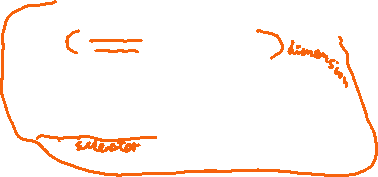 dimension
selector